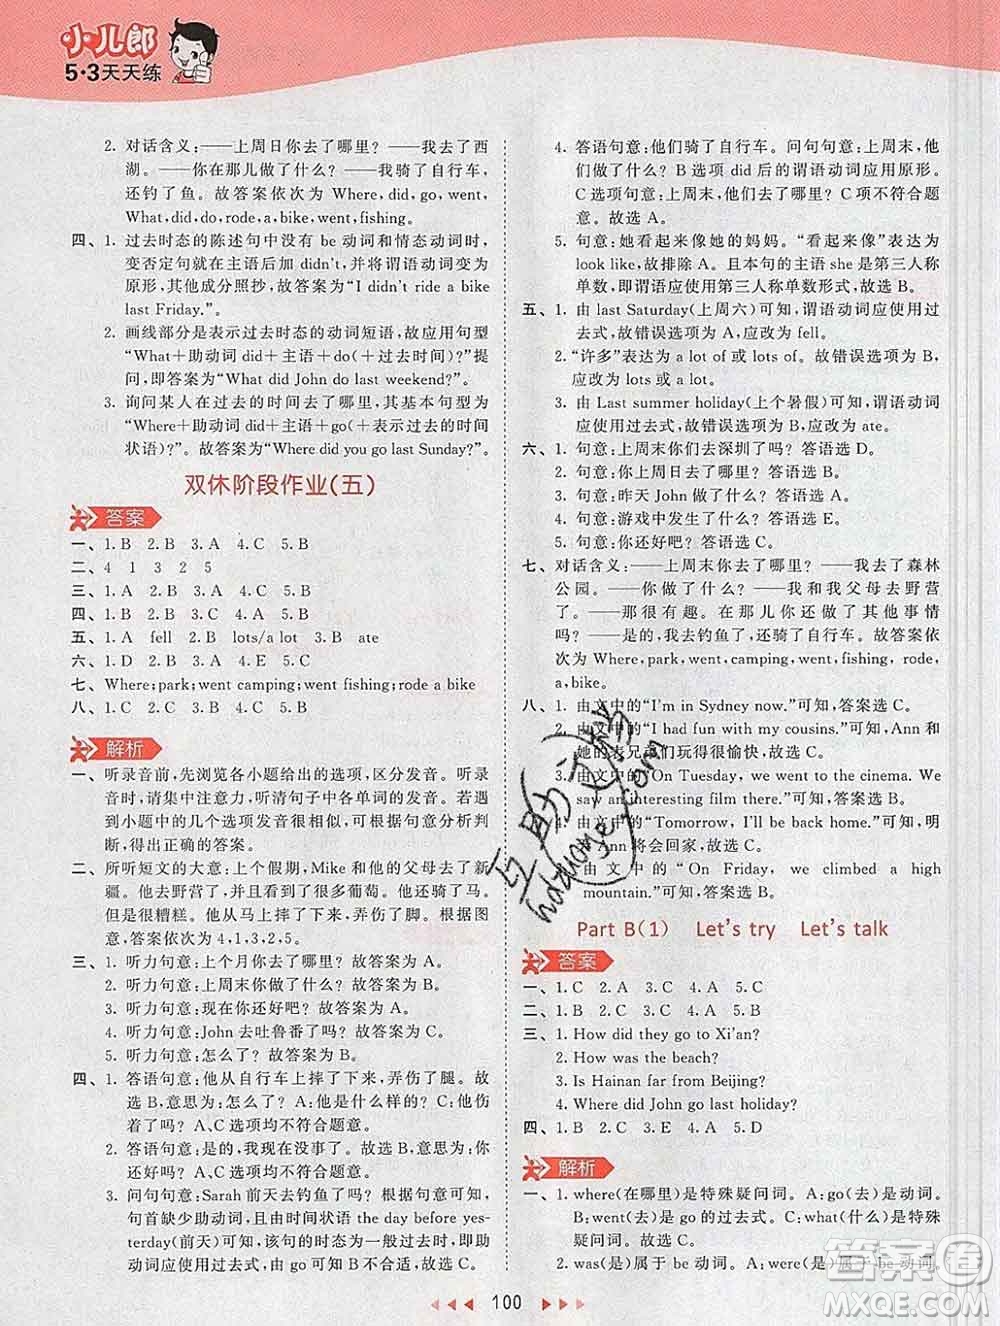 小儿郎
5·3天天练
2. 对话含义:——上周日你去了哪里？——我去了西
湖。——你在那儿做了什么？——我骑了自行车,
还钓了鱼。故答案依次为 Where, did, go, went,
What, did, do, rode, a, bike, went, fishing。
四、1. 过去时态的陈述句中没有 be 动词和情态动词时,
变否定句就在主语后加 didn't,并将谓语动词变为
原形,其他成分照抄,故答案为“I didn't ride a bike
last Friday.”。
2. 画线部分是表示过去时态的动词短语,故应用句型
“What＋助动词 did＋主语＋do(＋过去时间)?”提
问,即答案为“What did John do last weekend?”。
3. 询问某人在过去的时间去了哪里,其基本句型为
“Where＋助动词 did＋主语＋go(＋过去的时间
状语)?”。故答案为“Where did you go last Sunday?”。
双休阶段作业(五)
答案
一、1. B 2. B 3. A 4. C 5. B
二、4 1 3 2 5
三、1. B 2. A 3. A 4. C 5. B
四、1. B 2. B 3. C 4. A 5. B
五、1. A fell 2. B lots/a lot 3. B ate
六、1. D 2. A 3. B 4. E 5. C
七、Where; park; went camping; went fishing; rode a bike
八、1. C 2. A 3. B 4. C 5. B
解析
一、听录音前,先浏览各小题给出的选项,区分发音。听录
音时,请集中注意力,听清句子中各单词的发音。若遇
到小题中的几个选项发音很相似,可根据句意分析判
断,得出正确的答案。
二、所听短文的大意:上个假期,Mike 和他的父母去了新
疆。他去野营了,还吃了很多葡萄。他还学习骑了马。
但是很糟糕。他从马上摔了下来,弄伤了脚。根据图
意,答案依次为 4,1,3,2,5。
三、1. 听力句意:上个月你去了哪里？故答案为 A。
2. 听力句意:上周末你做了什么？故答案为 A。
3. 听力句意:现在你还好吧？故答案为 A。
4. 听力句意:John 去吐鲁番了吗？故答案为 C。
5. 听力句意:怎么了？故答案为 B。
四、1. 答语句意:他从自行车上摔了下来,弄伤了腿。故
选 B,意思为:发生了什么？A:他忙碌吗？C:他伤
着了吗？A、C 选项均不符合题意。
2. 答语句意:是的,我现在没事了。故选 B,意思为:你
还好吗？A、C 选项均不符合题意。
3. 问句句意:Sarah 前天去钓鱼了吗？根据句意可知,
句首缺少助动词,又根据时间状语 the day before yes-
terday(前天)可知,该句的时态为一般过去时,故助
动词应使用过去式,由 go 可知 B 不合适,故选 C。
4. 答语句意:他们骑了自行车。问句句意:上周末,他
们做了什么？B 选项 did 后的谓语动词应用原形。
C 选项句意:上周末,他们去了哪里？C 项不符合题
意。故选 A。
5. 句意:她看起来像她的妈妈。“看起来像”表达为
look like,故排除 A。且本句的主语 she 是第三人称
单数,即谓语应使用第三人称单数形式。故选 B。
五、1. 由 last Saturday(上周六)可知,谓语动词应使用过
去式,故错误选项为 A,应改为 fell。
2. “许多”表达为 a lot of 或 lots of。故错误选项为 B,
应改为 lots 或 a lot。
3. 由 Last summer holiday(上个暑假)可知,谓语动词
应使用过去式,故错误选项为 B,应改为 ate。
六、1. 句意:上周末你们去了深圳了吗？答语选 D。
2. 句意:你上周末去了哪里？答语选 A。
3. 句意:昨天 John 做了什么？答语选 B。
4. 句意:游戏中发生了什么？答语选 E。
5. 句意:你还好吧？答语选 C。
七、对话含义:——上周末你去了哪里？——我去了森林
公园。——你做了什么？——我和我父母去野营
了。——那很有趣。——在那儿你还做了其他事情
吗？——是的,我去钓鱼了,还骑了自行车。故答案依
次为 Where, park, went, camping, went, fishing, rode,
a, bike。
八、1. 由文中的“I'm in Sydney now.”可知,答案选 C。
2. 由文中的“I had fun with my cousins.”可知,Ann 和
她的表兄弟们玩得很愉快,故选 A。
3. 由文中的“On Tuesday, we went to the cinema. We
saw an interesting film there.”可知,答案选 B。
4. 由文中的“Tomorrow, I'll be back home.”可知,明
天 Ann 将会回家,故选 C。
5. 由文中的“On Friday, we climbed a high
mountain.”可知,答案选 B。
Part B(1) Let's try Let's talk
答案
一、1. C 2. A 3. C 4. A 5. C
二、1. B 2. C 3. B 4. A 5. B
三、1. How did they go to Xi'an?
2. How was the beach?
3. Is Hainan far from Beijing?
4. Where did John go last holiday?
四、1. C 2. B 3. A 4. A 5. D
解析
一、1. where(在哪里)是特殊疑问词。A:go(去)是动词。
B:went(去)是 go 的过去式。C:what(什么)是特殊
疑问词。故选 C。
2. was(是)属于 be 动词。A:were(是)属于 be 动词。
100
互助文档
hdzuoye.com
答案圈
MXQE.COM